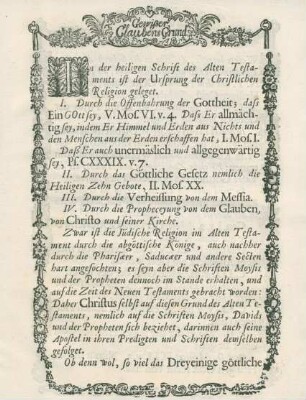 Gewisser
Glaubens Grund
In der heiligen Schrift des Alten Testa-
ments ist der Ursprung der Christlichen
Religion geleget.
I. Durch die Offenbahrung der Gottheit; daß
Ein GOtt sey, V. Mos. VI. v. 4. Daß Er allmäch-
tig sey, indem Er Himmel und Erden aus Nichts und
den Menschen aus der Erden erschaffen hat, I. Mos. I.
Daß Er auch unermäslich und allgegenwärtig
sey, Ps. CXXXIX. v. 7.
II. Durch das Göttliche Gesetz nemlich die
Heiligen Zehn Gebote, II. Mos. XX.
III. Durch die Verheissung von dem Messia.
IV. Durch die Prophezeyung von dem Glauben,
von Christo und seiner Kirche.
Zwar ist die Jüdische Religion im Alten Testa-
ment durch die abgöttische Könige, auch nachher
durch die Pharisäer, Saducäer und andere Secten
hart angefochten; es seyn aber die Schriften Moysis
und der Propheten dennoch im Stande erhalten, und
auf die Zeit des Neuen Testaments gebracht worden:
Daher Christus selbst auf diesen Grund des Alten Te-
staments, nemlich auf die Schriften Moysis, Davids
und der Propheten sich beziehet, darinnen auch seine
Apostel in ihren Predigten und Schriften demselben
gefolget.
Ob denn wol, so viel das Dreyeinige göttliche